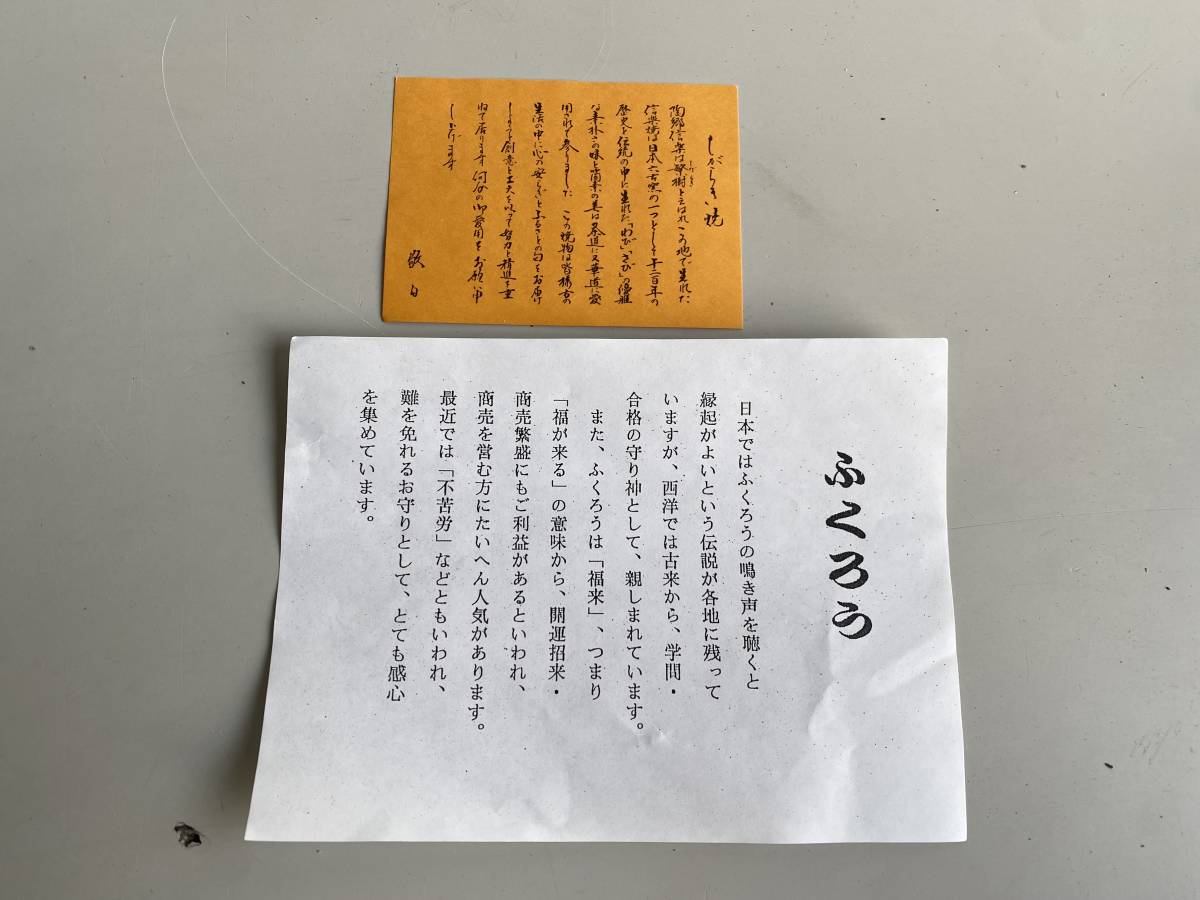 しがらき焼
陶郷信楽は繁樹と云はれこの地で生れた
しげき
信楽焼は日本六古窯の一つとして千二百年の
歴史と伝統の中に生れた「わび」「さび」の優雅
な素朴さの味と簡素の美は茶道に又華道に愛
用されて参りました この焼物は皆様方の
生活の中に心の安らぎとふるさとの匂をお届け
しようと創意と工夫を以って努力と精進を重
ねて居ります 何分の御愛用をお願い申
し上げます
敬白
ふくろう
日本ではふくろうの鳴き声を聴くと
縁起がよいという伝説が各地に残って
いますが、西洋では古来から、学問・
合格の守り神として、親しまれています。
また、ふくろうは「福来」、つまり
「福が来る」の意味から、開運招来・
商売繁盛にもご利益があるといわれ、
商売を営む方にたいへん人気があります。
最近では「不苦労」などともいわれ、
難を免れるお守りとして、とても感心
を集めています。